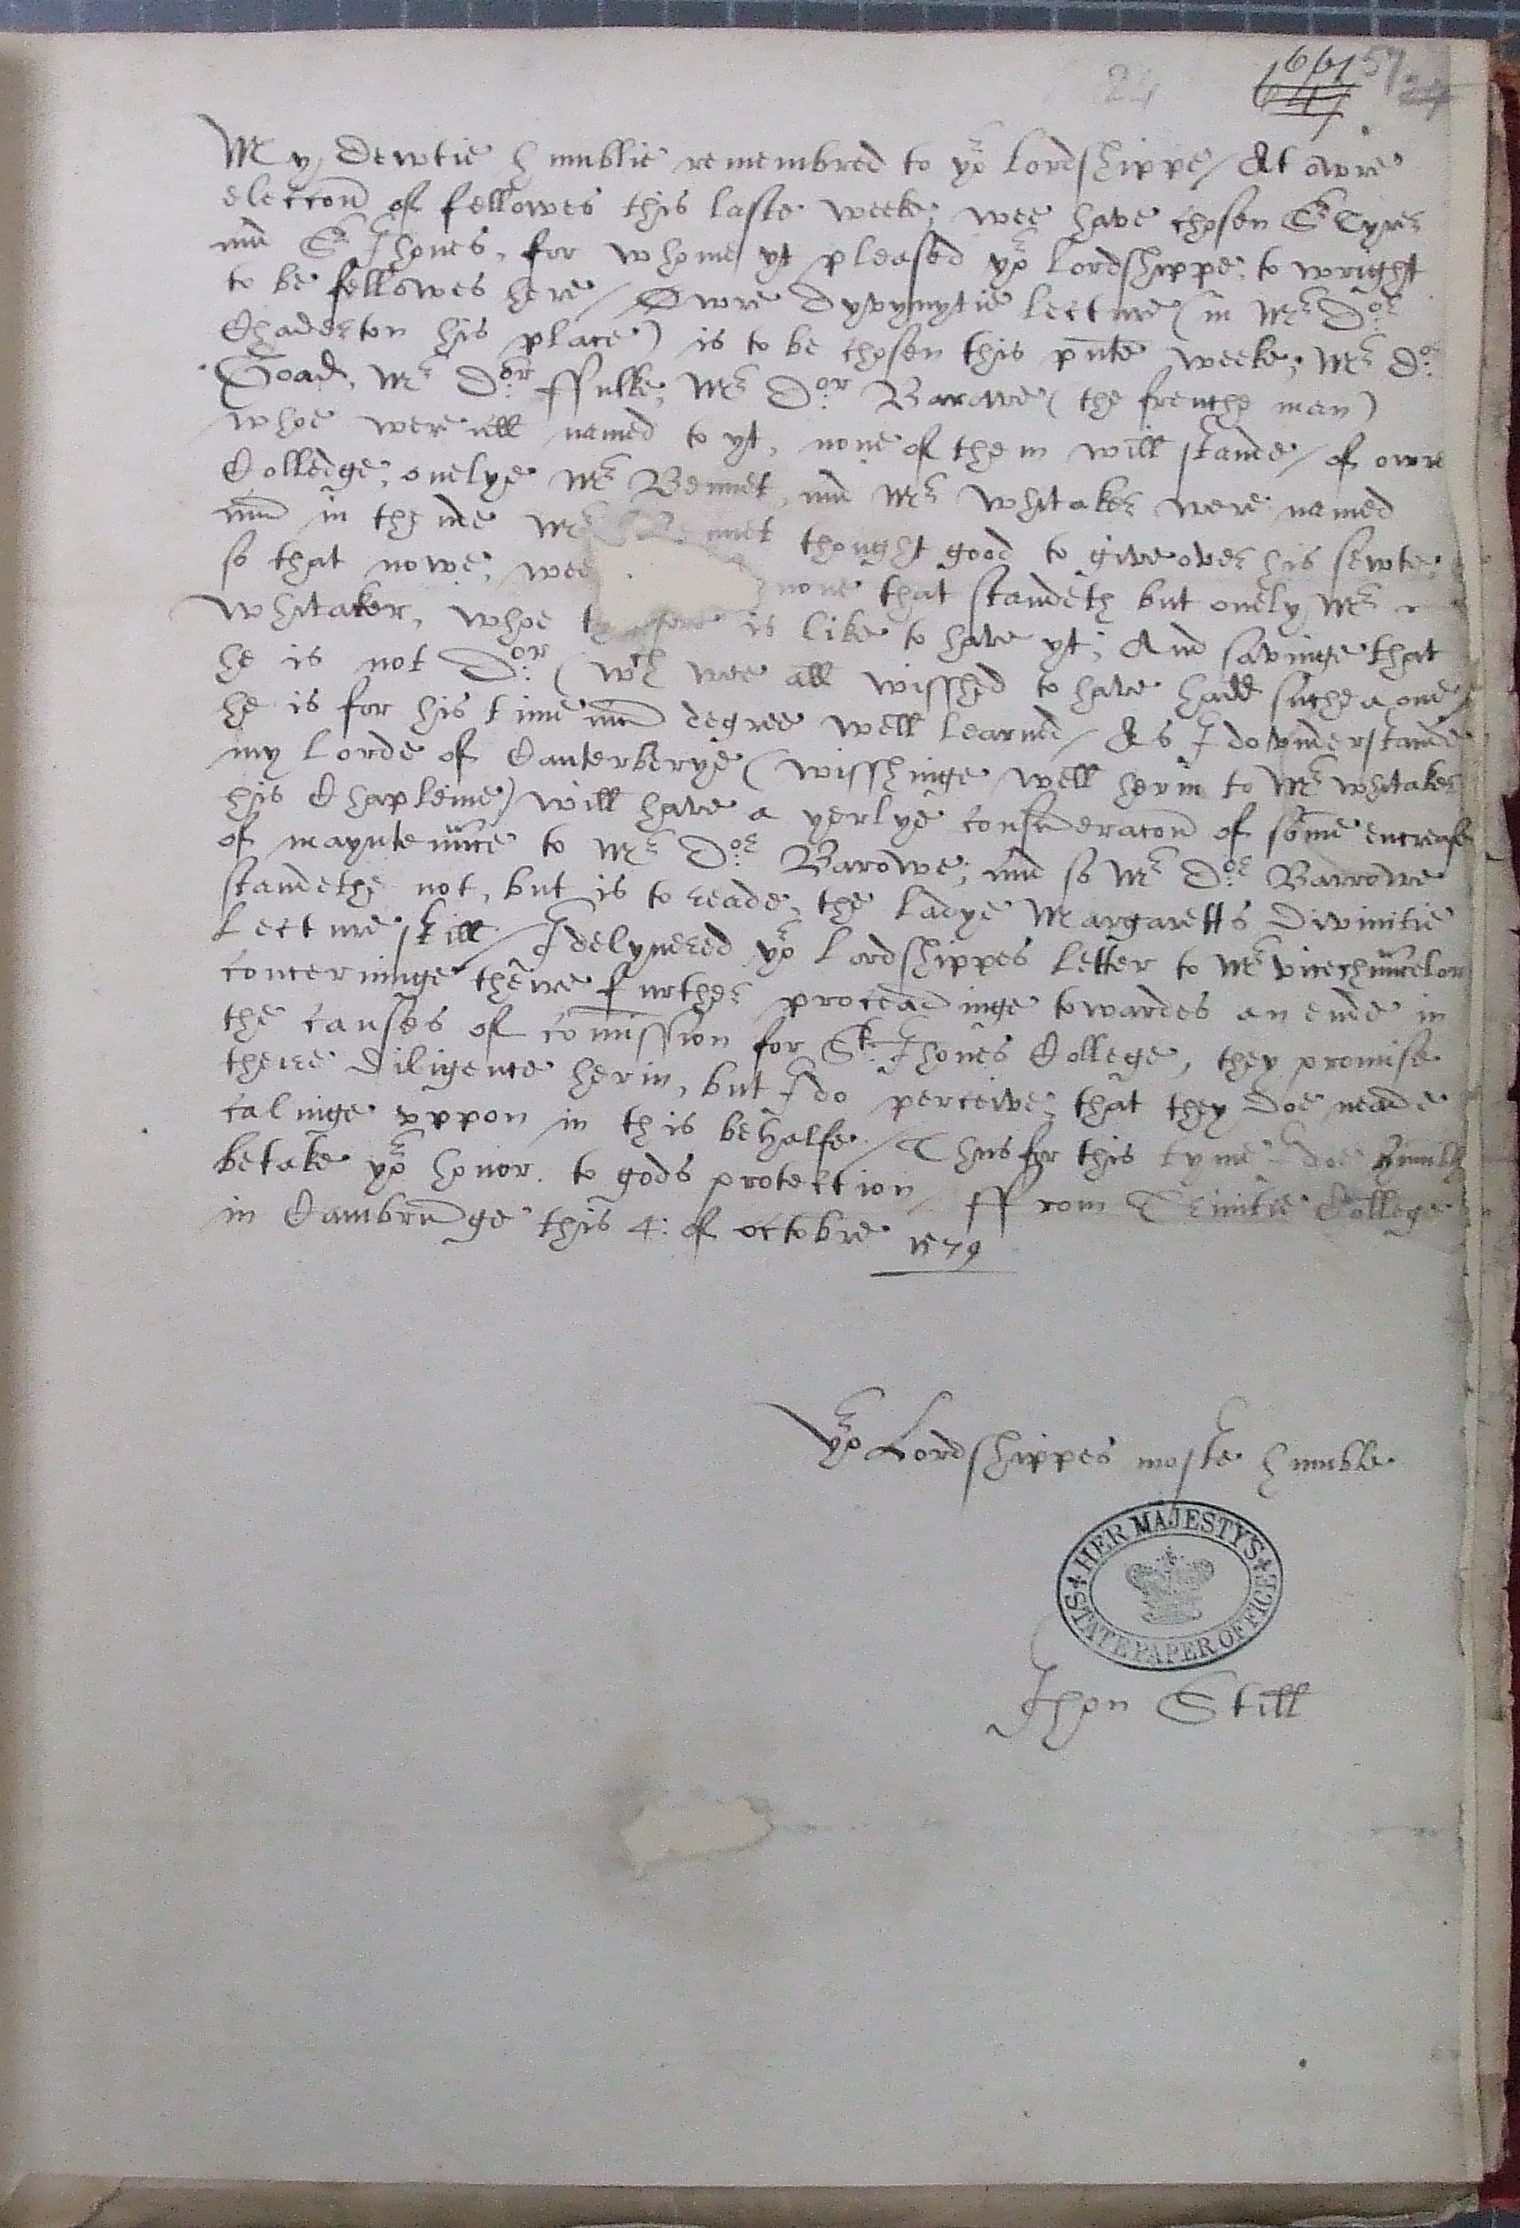 24 661 57 24
My dewtie humblie remembred to yor Lordshippe / At owre
eleccon of fellowes this laste weeke, wee have chosen Sr Tyres
and Sr Jhones, for whome yt pleased yor Lordshippe, to wright
to be fellowes here / Owre dyvynytie lecture (in Mr Dor
Chaderton his place) is to be chosen this pnte weeke; Mr Dor
Goad, Mr Dor ffulke, Mr Dor Barowe (the frenche man)
whoe were all named to yt, none of them will stande / of owre
Colledge, onelye Mr Bennet, and Mr Whitaker were named
and in the nde Mr Bennet thought good to give over his sewte,
so that nowe, wee none that standeth but onely Mr
Whitaker, whoe is like to have yt; And savinge that
he is not Dor (wch wee all wisshed to have hadd suche a one)
he is for his time and degree well learned / As I do vnderstande
my Lorde of Canterberye (wisshinge well herin to Mr Whitaker
his Chapleine) will have a yerlye consideracon of some encrease
of mayntenance to Mr Dor Barowe; and so Mr Dor Barrowe
standethe not, but is to reade, the Ladye Margaretts divinitie
Lecture still / I delyuered yor Lordshippes letter to Mr vicechancelor
concerninge theire further proceadinge towardes an ende in
the causes of comission for St Jhones College, they promise
theire diligence herin, but I do perceive, that they doe neade
calinge vppon in this behalfe / Thus for this tyme I doe humbly
betake yor honor. to gods protection / ffrom Trinitie College
in Cambridge this 4: of octobre 1579
yor Lordshippes moste humble
HER MAJESTY'S STATE PAPER OFFICE
Jhon Still